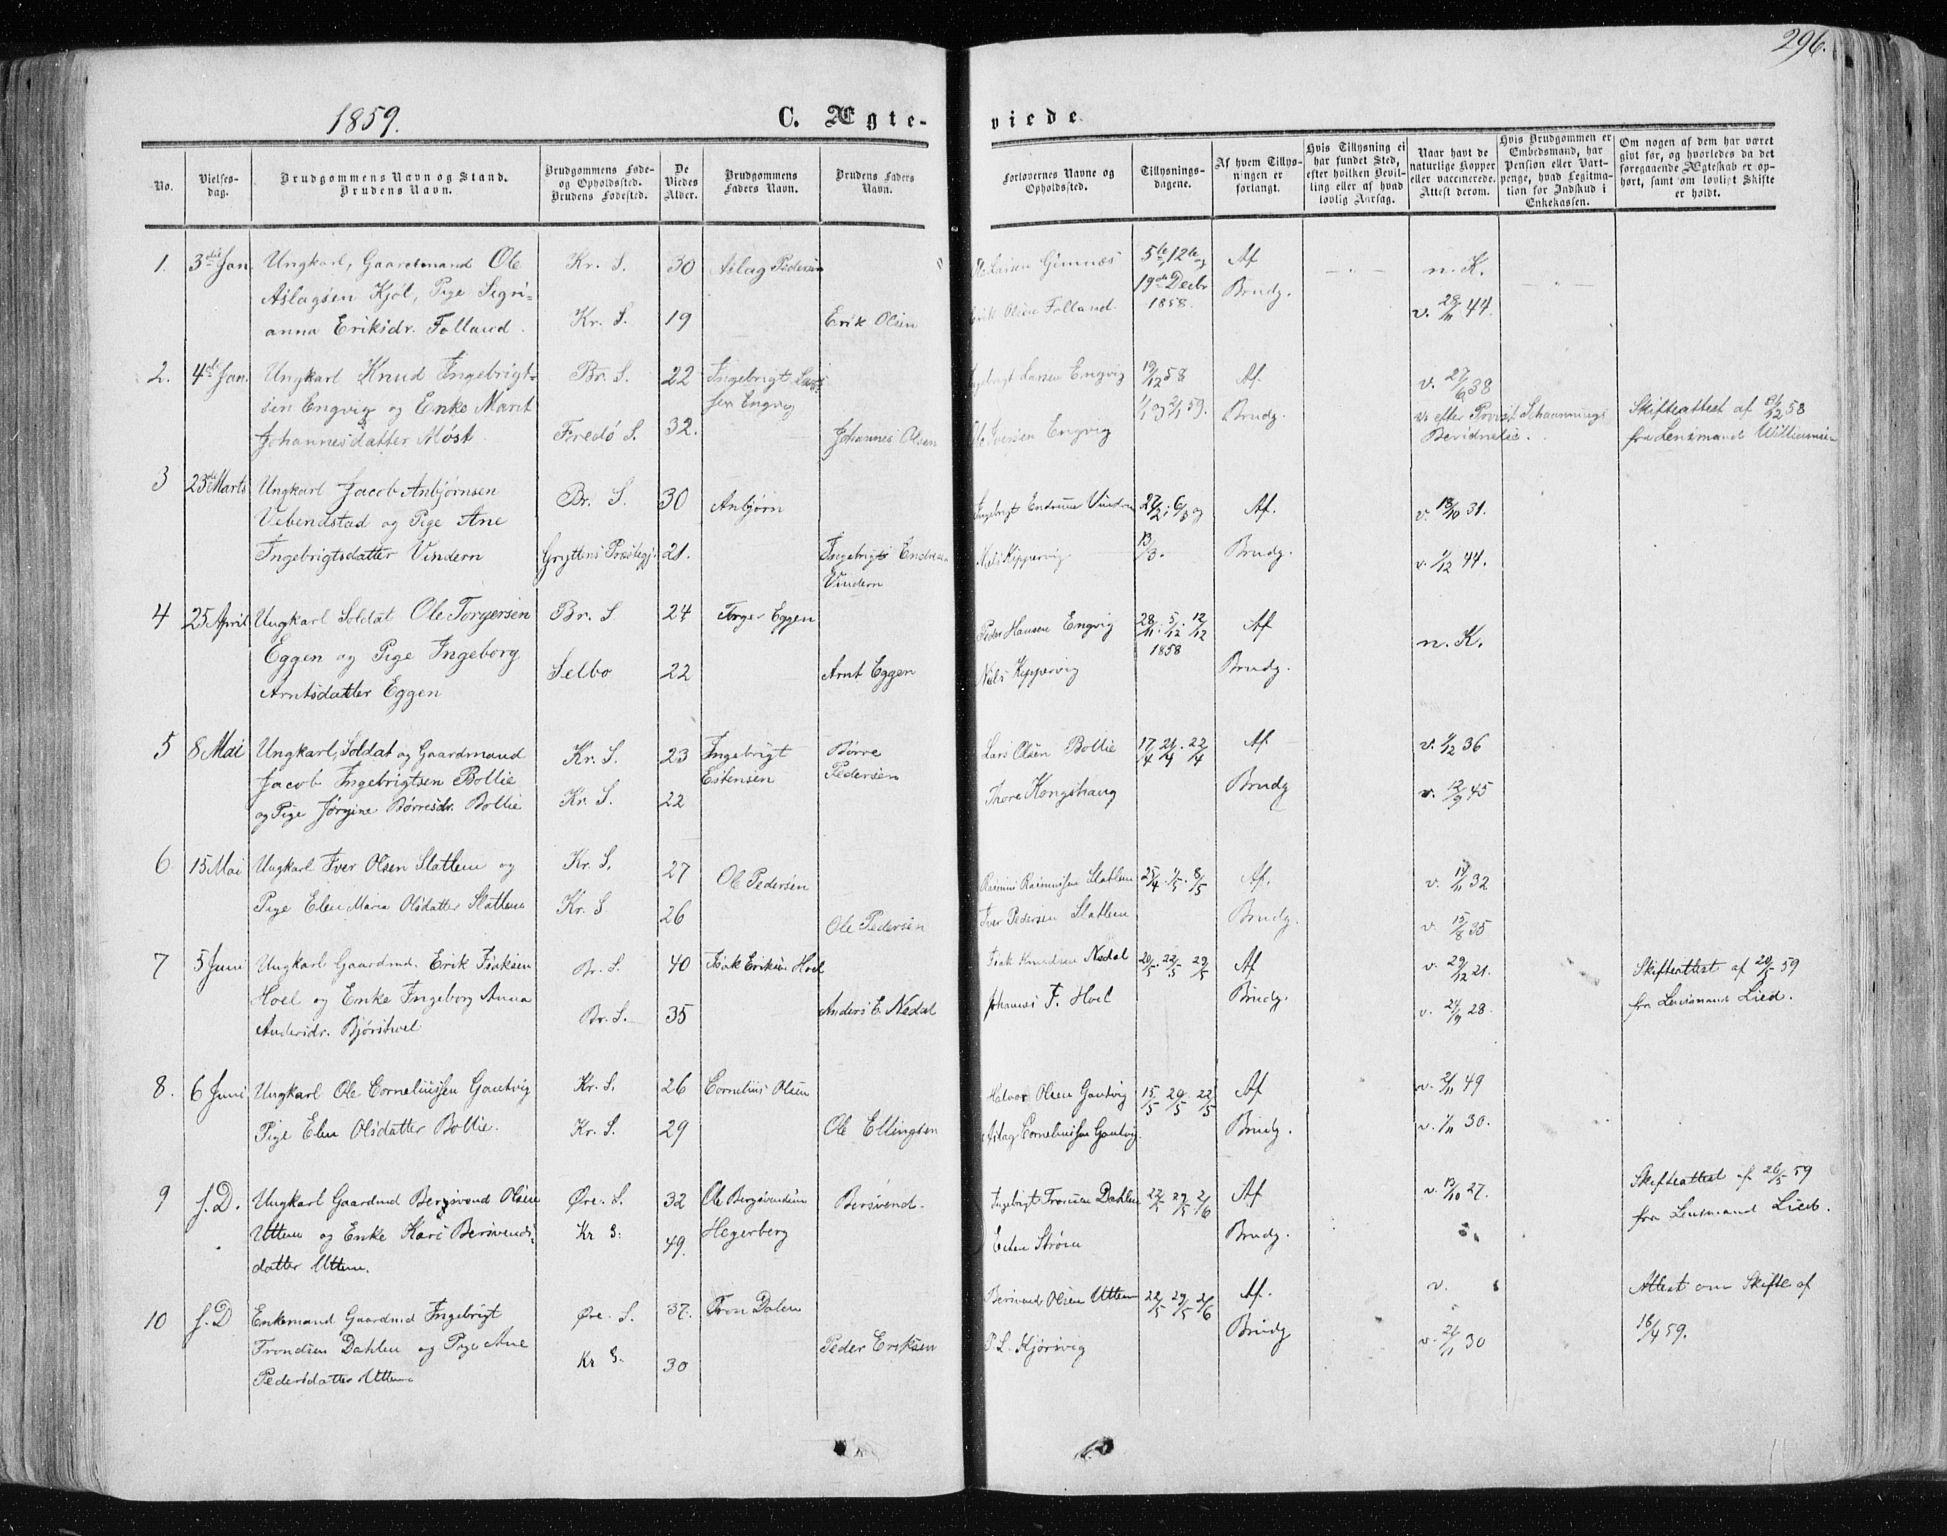 296.
1859.
C. Ægte-
viede
No.
Vielses-
dag.
Brudgommens Navn og Stand.
Brudens Navn.
Brudgommens Føde-
og Opholdssted.
Brudens Fødested.
De
Viedes
Alder.
Brudgommens
Faders Navn.
Brudens Faders
Navn.
Forlovernes Navne og
Opholdssted.
Tillysnings-
dagene.
Af hvem Tillys-
ningen er
forlangt.
Hvis Tillysning ei
har fundet Sted,
efter hvilken Bevil-
ling eller af hvad
lovlig Aarsag.
Naar havt de
naturlige Kopper
eller vaccinerede.
Attest derom.
Hvis Brudgommen er
Embedsmand, har
Pension eller Vart-
penge, hvad Legitima-
tion for Indskud i
Enkekassen.
Om nogen af dem har været
givt før, og hvorledes da det
foregaaende Ægteskab er op-
hørt, samt om lovligt Skifte
er holdt.
1. 3die Jan. Ungkarl, Gaardmand Ole Kr. S. 30 Aslag Pedersen
Aslagsen Kjøl, Pige Sigri-
anna Eriksdr. Folland. Kr. S. 19 Erik Olsen
Larsen Gimnæs 5te, 12te og Af n. K.
19de Decbr Brudg.
Erik Olsen Folland. 1858. v. 29/11 44.
2. 4de Jan. Ungkarl Knud Ingebrigt- Br. S. 22 Ingebrigt Lars-
sen Engvig og Enke Marit sen Engvig
Johannesdatter Møst. Fredø S. 32. Johannes Olsen
Ingebrigt Larsen Engvig 19/12 58 Af. v. 27/6 38
1/1 og 2/1 59. Brudg. v. efter Provst Schaannings Skifteattest af 21/12 58
Ole Iversen Engvig Bevidnelse. fra Lensmand Williumsen
3 23de Marts Ungkarl Jacob Anbjørnsen Br. S. 30 Anbjørn
Vebendstad og Pige Ane
Ingebrigtsdatter Vindern Gryttens Præstegj. 21. Ingebrigt Endresen
Vindern
Ingebrigt Endresen Vindern 27/2. 6/3 og Af. v. 13/10 31.
Niels Kippervig 13/3. Brudg. v. 1/12 44.
4 25 April Ungkarl Soldat Ole Torgersen Br. S 24 Torger Eggen
Eggen og Pige Ingeborg
Arntsdatter Eggen Selbo 22 Arnt Eggen
Peder Hansen Engvig 28/11. 5/12. 12/12 Af n. K.
1858
Niels Kippervig Brudg.
5 8 Mai Ungkarl, Soldat og Gaardmand Kr. S. 23 Ingebrigt Børre
Jacob Ingebrigtsen Bollie Estensen Pedersen
og Pige Jørgine Børresdr. Bollie Kr. S. 22
Lars Olsen Bollie 17/4 21/4. 22/4 Af v. 2/12 36
Thore Kongshaug Brudg v. 12/9 45
6 15 Mai Ungkarl Iver Olsen Slatlem og Kr. S. 27 Ole Pedersen
Pige Elen Maria Olsdatter Slatlem Kr. S 26 Ole Pedersen
Rasmus Rasmussen Slatlem 25/4. 1/5. 8/5 Af. v. 14/11 32
Iver Pedersen Slatlem Brudg. v. 15/8 35
7 5 Juni Ungkarl Gaardmd. Erik Isaksen Br. S. 40 Isak Eriksen Hoel
Hoel og Enke Ingeborg Anna
Andersdr. Bjørshoel Br. S. 35 Anders E. Nedal
Isak Knudsen Nedal 20/5. 22/5 29/5 Af v. 29/12 21. Skifteattest af 20/5 59
Johannes I. Hoel Brudg. v. 24/9 28. fra Lensmand Lied.
8. 6 Juni Ungkarl Ole Corneliussen Gautvig Kr. S. 26 Cornelius Olsen
Pige Elen Olsdatter Bollie. Kr. S. 29 Ole Ellingsen
Halvor Olsen Gautvig 15/5 20/5. 22/5 Af v. 2/11 49
Aslag Corneliussen Gautvig. Brudg. v. 1/11 30.
9 s. D. Ungkarl Gaardmd Bersvend Olsen Øre. S. 32 Ole Bergsvendsen Bersvend.
Uttem og Enke Kari Bersvends- Kr S. 49. Hegerberg
datter Uttem.
Ingebrigt Tronsen Dahlen 22/5 29/5 2/6 Af v. 13/10 27. Skifteattest af 26/5 59
Esten Strøm Brudg. fra Lensmand Lied.
10 s. D Enkemand Gaardmd Ingebrigt Øre. S. 37. Tron Dalen
Trondsen Dahlen og Pige Ane
Pedersdatter Uttem Kr S. 30 Peder Eriksen
Bersvend Olsen Uttem 22/5 29/5 2/6 Af. v. Attest om Skifte af
P. L. Hjørsvig Brudg v. 21/11 30 16/4 59.